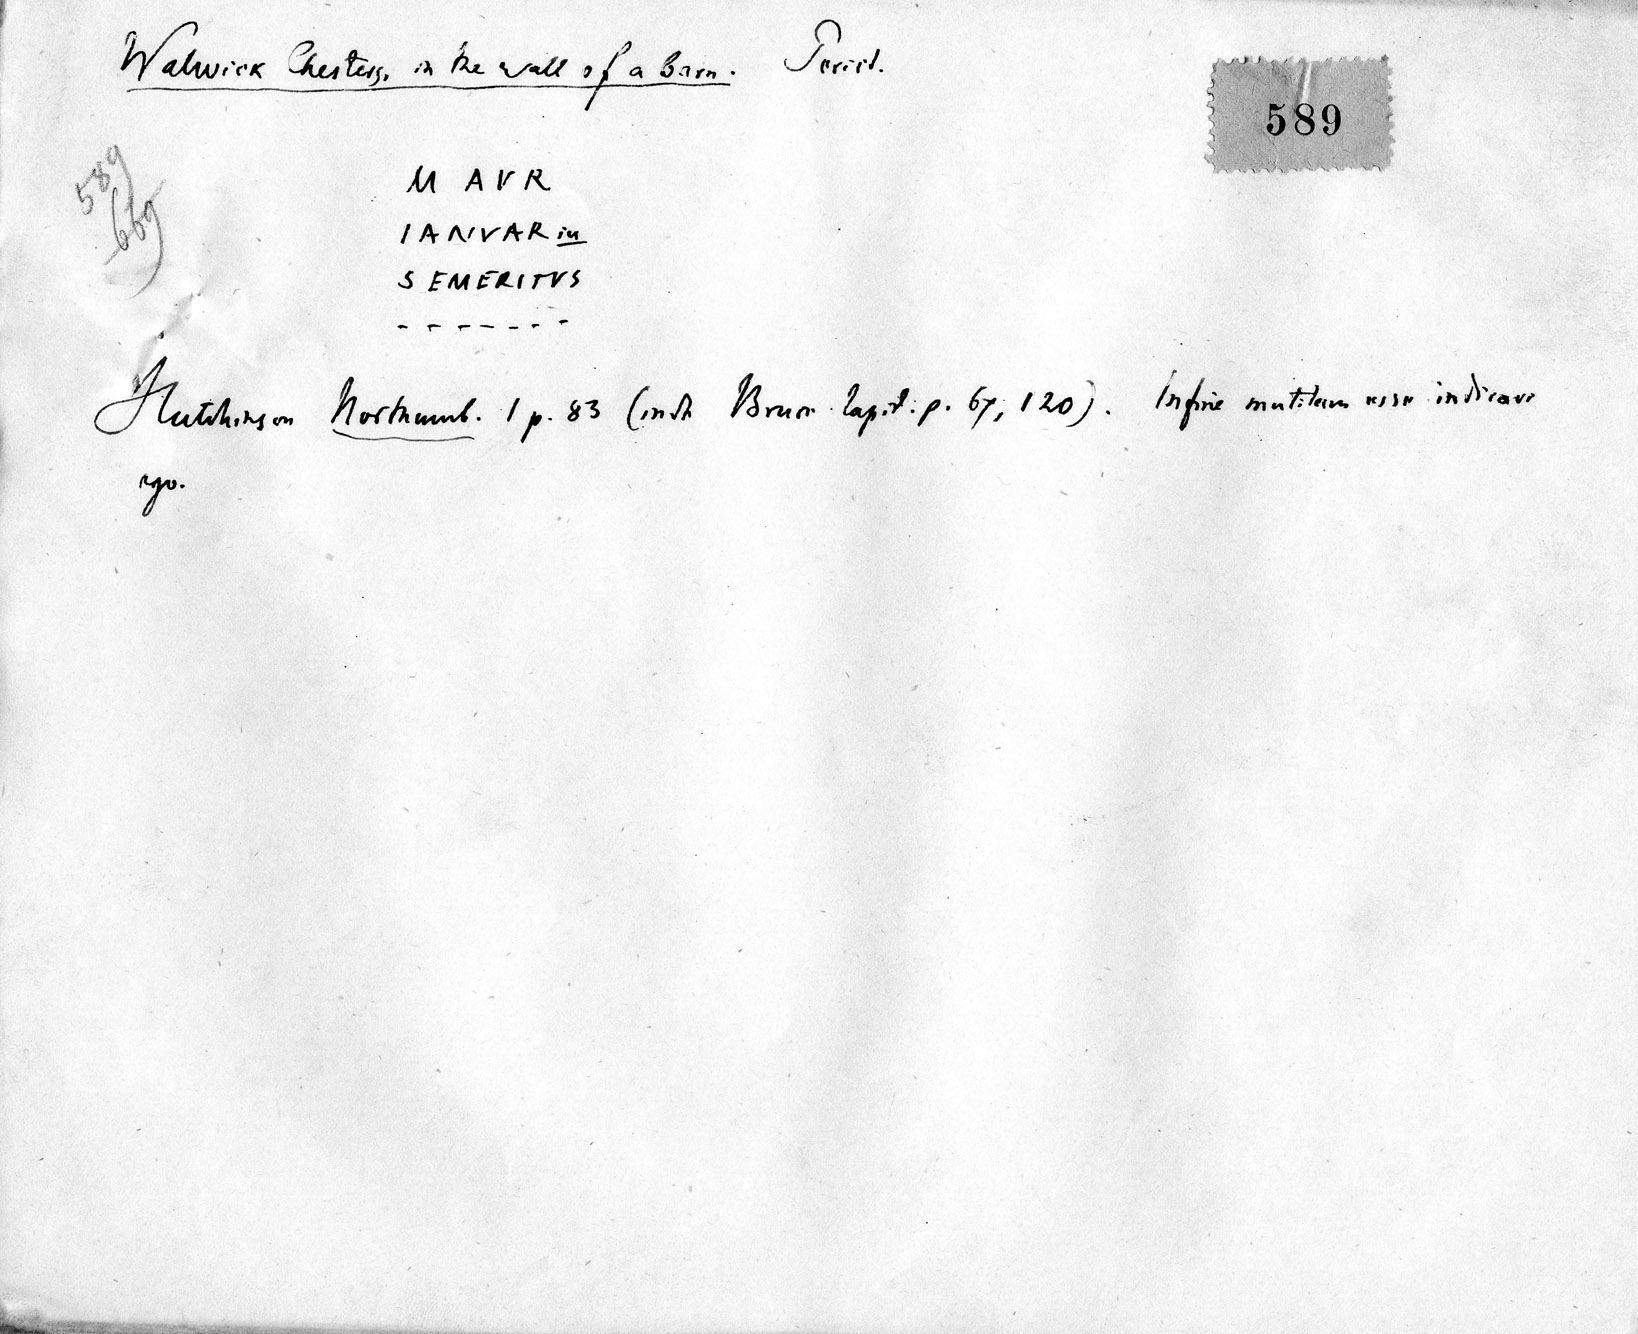 Walwick Chesters, in the wall of a barn. Periit.
589
589
669
M AVR
IANVAR iu
S EMERITVS
- - - - - - -
Hutchinson Northumb. 1 p. 83 (inde Bruce lapid. p. 67, 120). In fine mutilum esse indicavi
ego.